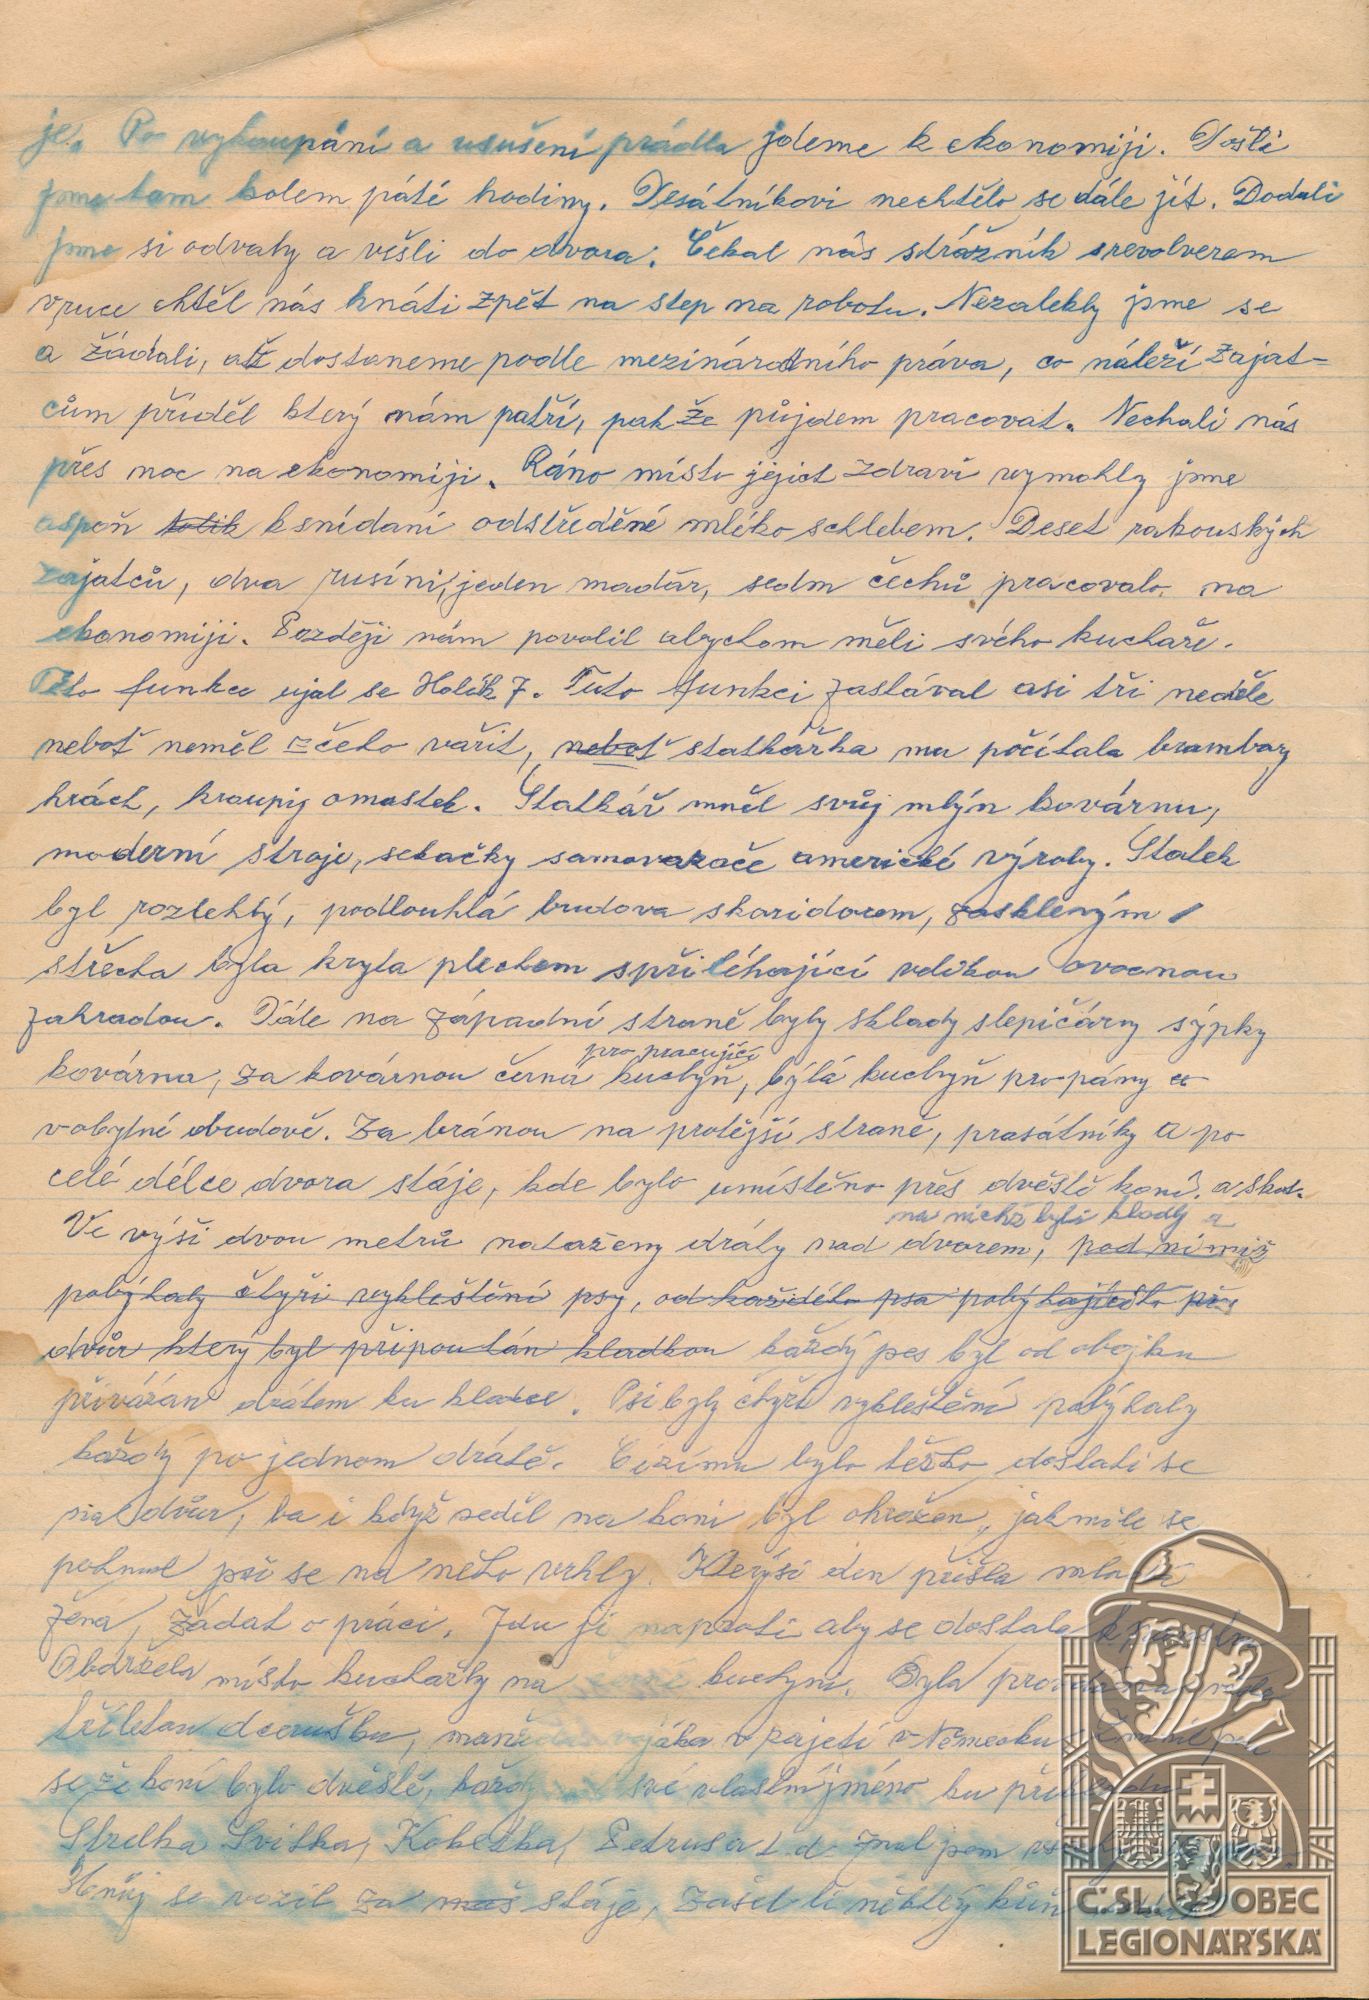 je. Po vykoupání a usušení prádla jdeme k ekonomiji. Došli
jsme tam kolem páté hodiny. Desátníkovi nechtělo se dále jít. Dodali
jsme si odvahy a vešli do dvora. Čekal nás strážník srevolverem
vruce chtěl nás hnáti zpět na step na robotu. Nezalekly jsme se
a žádali, ať dostaneme podle mezinárodního práva, co náleží zajat-
cům příděl který nám patří, pak že půjdem pracovat. Nechali nás
přes noc na ekonomiji. Ráno místo jejich zdraví vymohly jsme
aspoň tolik k snídani odstředěné mléko schlebem. Deset rakouských
zajatců, dva rusíni, jeden madár, sedm čechů pracovalo na
ekonomiji. Později nám povolil abychom měli svého kuchaře.
Této funkce ujal se Holík J. Tuto funkci zastával asi tři neděle
neboť neměl z čeho vařit, neboť statkářka mu počítala brambory
hrách, kroupy omastek. Statkář mněl svůj mlýn kovárnu,
moderní stroje, sekačky samovazače americké výroby. Statek
byl rozlehlý, podlouhlá budova skoridorem, zaskleným
střecha byla kryta plechem spřiléhající velikou ovocnou
zahradou. Dále na západní straně byly sklady slepičárny sýpky
pro pracující
kovárna, za kovárnou černá kuchyň, bílá kuchyň pro pány a
vobytné budově. Za bránou na protější straně, prasátníky a po
celé délce dvora stáje, kde bylo umístěno přes dvěstě koní. a skot.
na nichž byli kladky a
Ve výši dvou metrů nataženy dráty nad dvorem, pod nimiž
pobýhaly čtyři vykleštění psy, od každého psa pobýhajícího
dvůr který byl připoután kladkou každý pes byl od obojku
přivázán drátem ku kladce. Psi byly čtyři vykleštění pobýhaly
každý po jednom drátě. Cizímu bylo těžko dostati se
na dvůr, ba i když seděl na koni byl ohrožen, jakmile se
pohnul psi se na něho vrhly. Kterýsi den přišla mladá
žena, žádat o práci. Jdu jí naproti aby se dostala k
Obdržela místo kuchařky na černé kuchyni. Byla provdána
tříletou dcerušku, manžela vojáka v zajetí v Německu
se že koní bylo dvěstě, každý své vlastní jméno ku příkladu
Strelka Svitka, Kobelka, Petrusa t. d. znal jsem
Hnůj se vozil za naš stáje, zašel li některý kůň
Č.SL. OBEC
LEGIONÁŘSKÁ